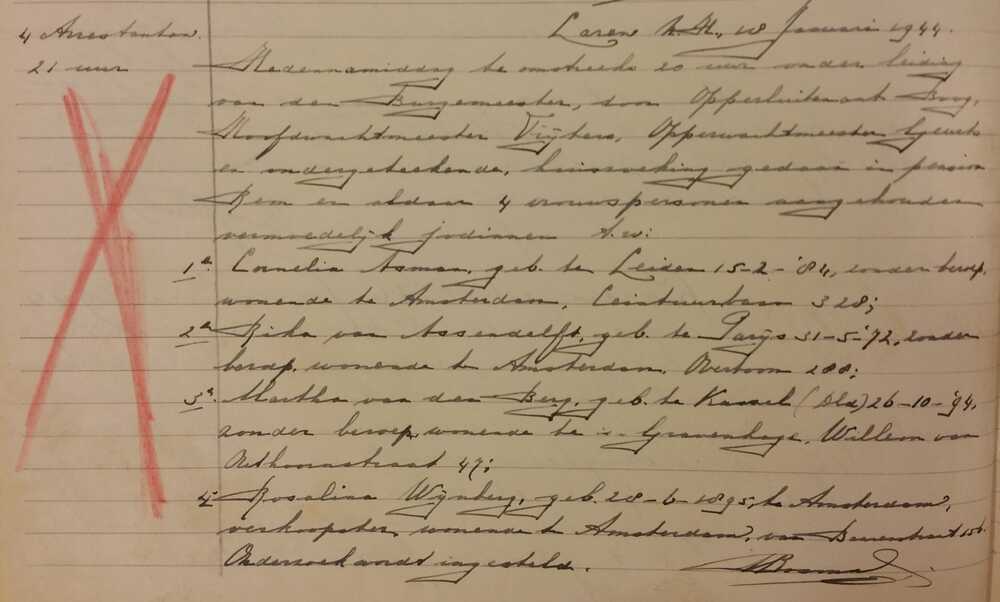 4 Arrestanten.
21 uur
Laren N.H., 18 Januari 1944.
Hedennamiddag te omstreeks 20 uur onder leiding
van den Burgemeester, door Opperluitenant Boog,
Hoofdwachtmeester Vijters, Opperwachtmeester
en ondergeteekende, huiszoeking gedaan in pension
Rem en aldaar 4 vrouwspersonen aangehouden
vermoedelijk jodinnen t.w:
1e. Cornelia Asman, geb. te Leiden 15-2-'84, zonder beroep,
wonende te Amsterdam, Ceintuurbaan 328;
2e Rika van Assendelft, geb. te Parijs 31-5-'72, zonder
beroep, wonende te Amsterdam, Overtoom 288;
3e. Martha van den Berg, geb. te Kassel (Dld) 26-10-'94,
zonder beroep, wonende te 's-Gravenhage, Willem van
Outhoornstraat 47;
4e Rosalina Wijnberg, geb. 28-6-1895, te Amsterdam,
verkoopster, wonende te Amsterdam, van
Onderzoek wordt ingesteld. Bosma